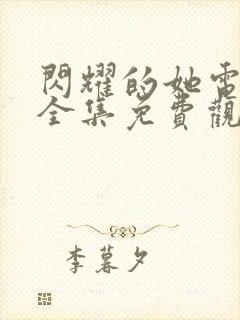 閃耀的她電
全集免費觀
李暮夕